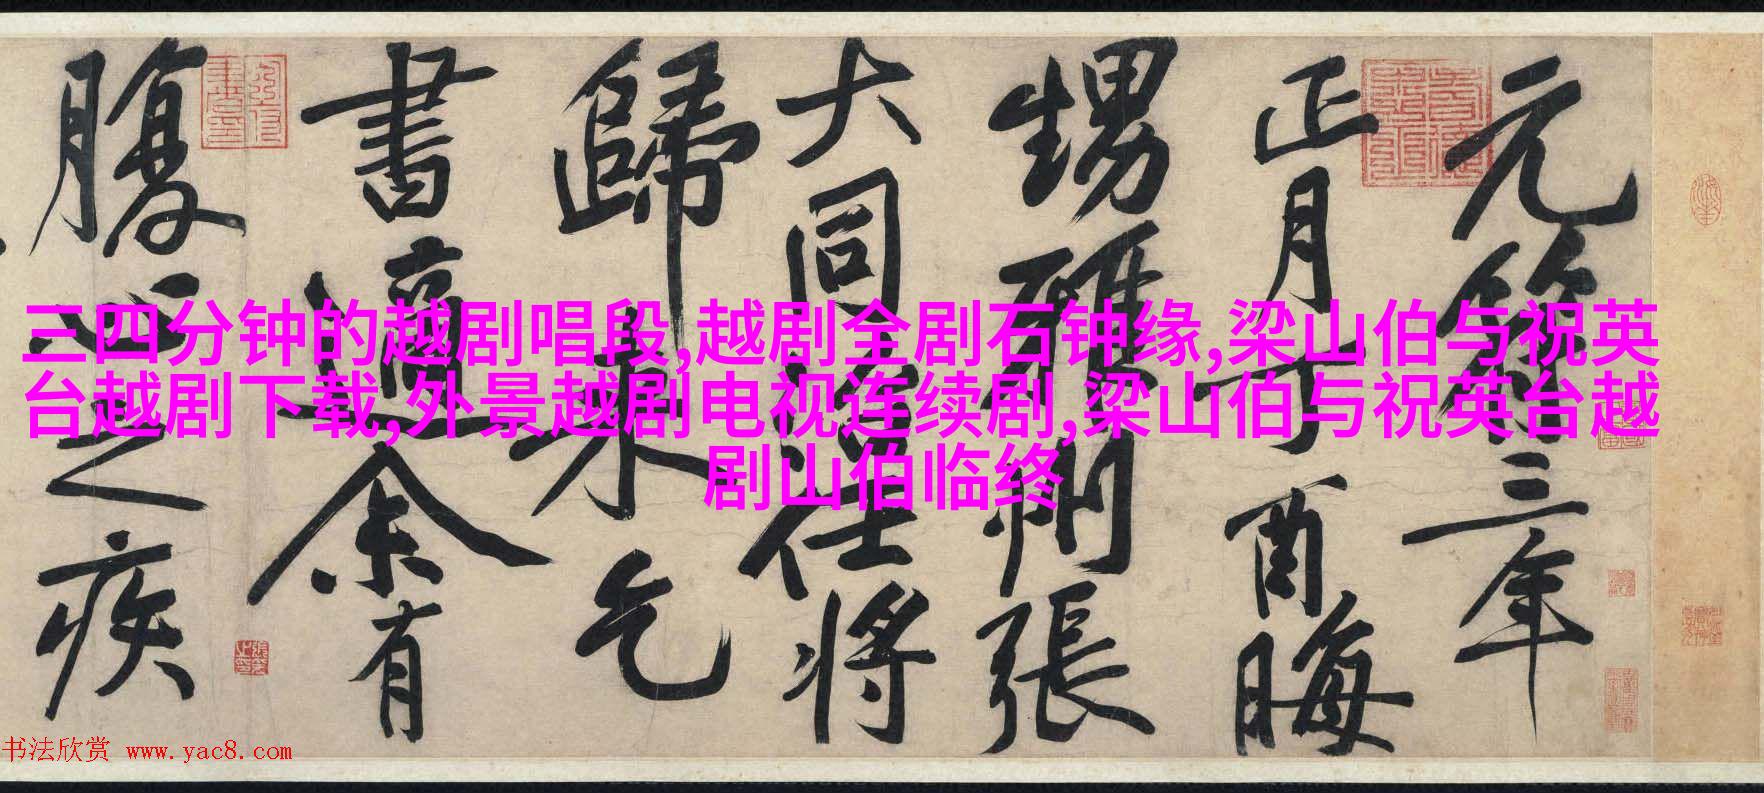 三四分钟的越剧唱段,越剧全剧石钟缘,梁山伯与祝英
台越剧下载,外景越剧电视连续剧,梁山伯与祝英台越
剧山伯临终
元符三年
正月丁酉晦
甥雅州張
大同治任將
歸來乞
書適余有
腹心之疾
书法欣赏 www.yac8.com